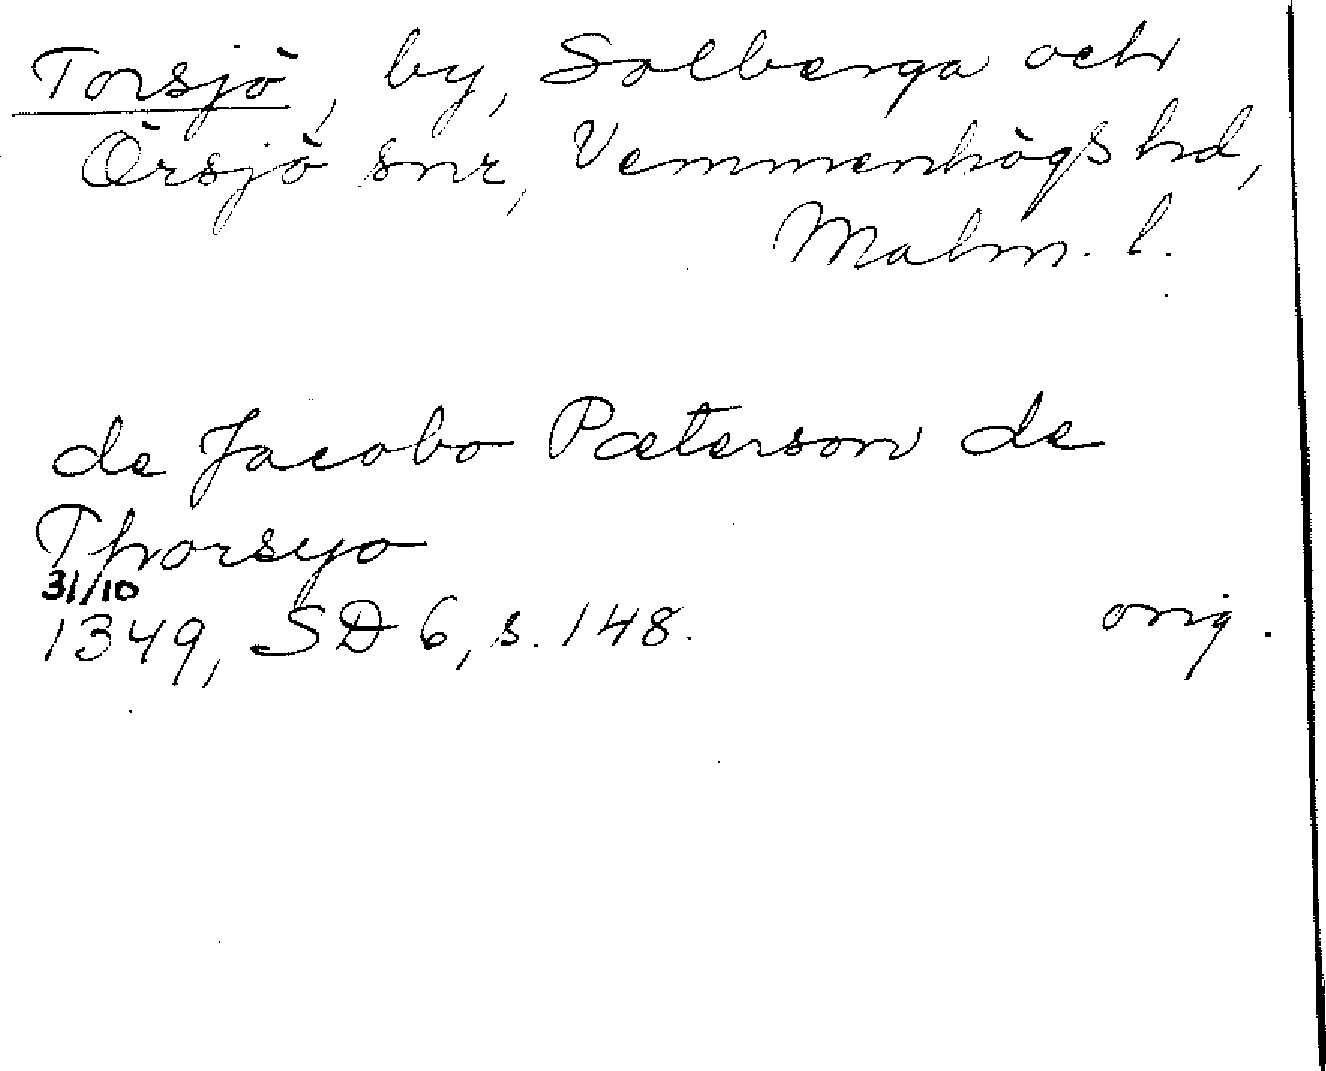 Torsjö, by, Solberga och
Örsjö snr, Vemmenhögs hd,
Malm. l.
de Jacobo Pæterson de
Thorsyo
31/10
1349, SD 6, s. 148. orig.